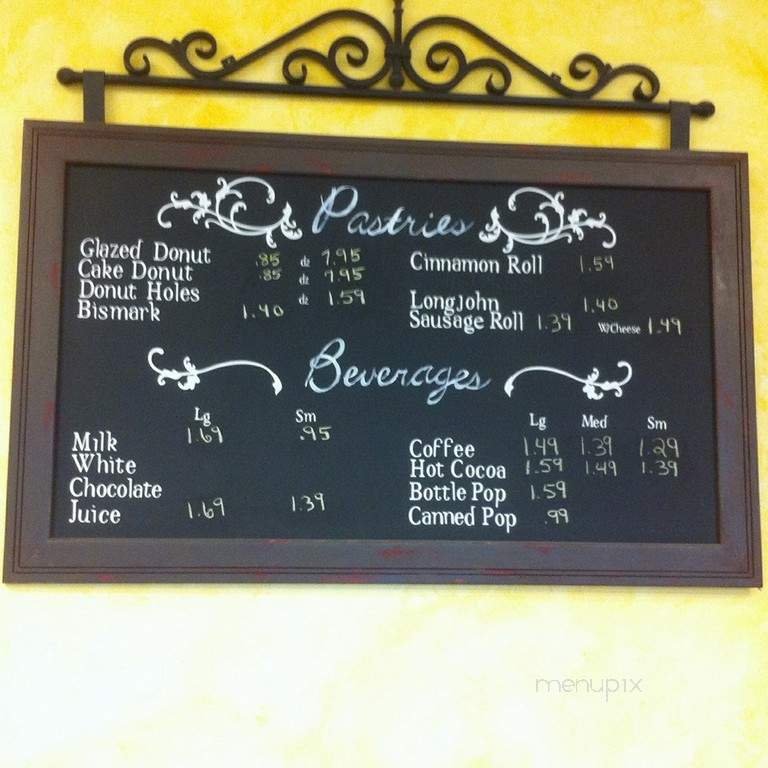 Pastries
Glazed Donut .85 dz 7.95
Cake Donut .85 dz 7.95
Donut Holes dz 1.59
Bismark 1.40
Cinnamon Roll 1.59
Long John 1.40
Sausage Roll 1.39 W/Cheese 1.49
Beverages
Lg Sm
Milk 1.69 .95
White
Chocolate
Juice 1.69 1.39
Lg Med Sm
Coffee 1.49 1.39 1.29
Hot Cocoa 1.59 1.49 1.39
Bottle Pop 1.59
Canned Pop .99
menupix